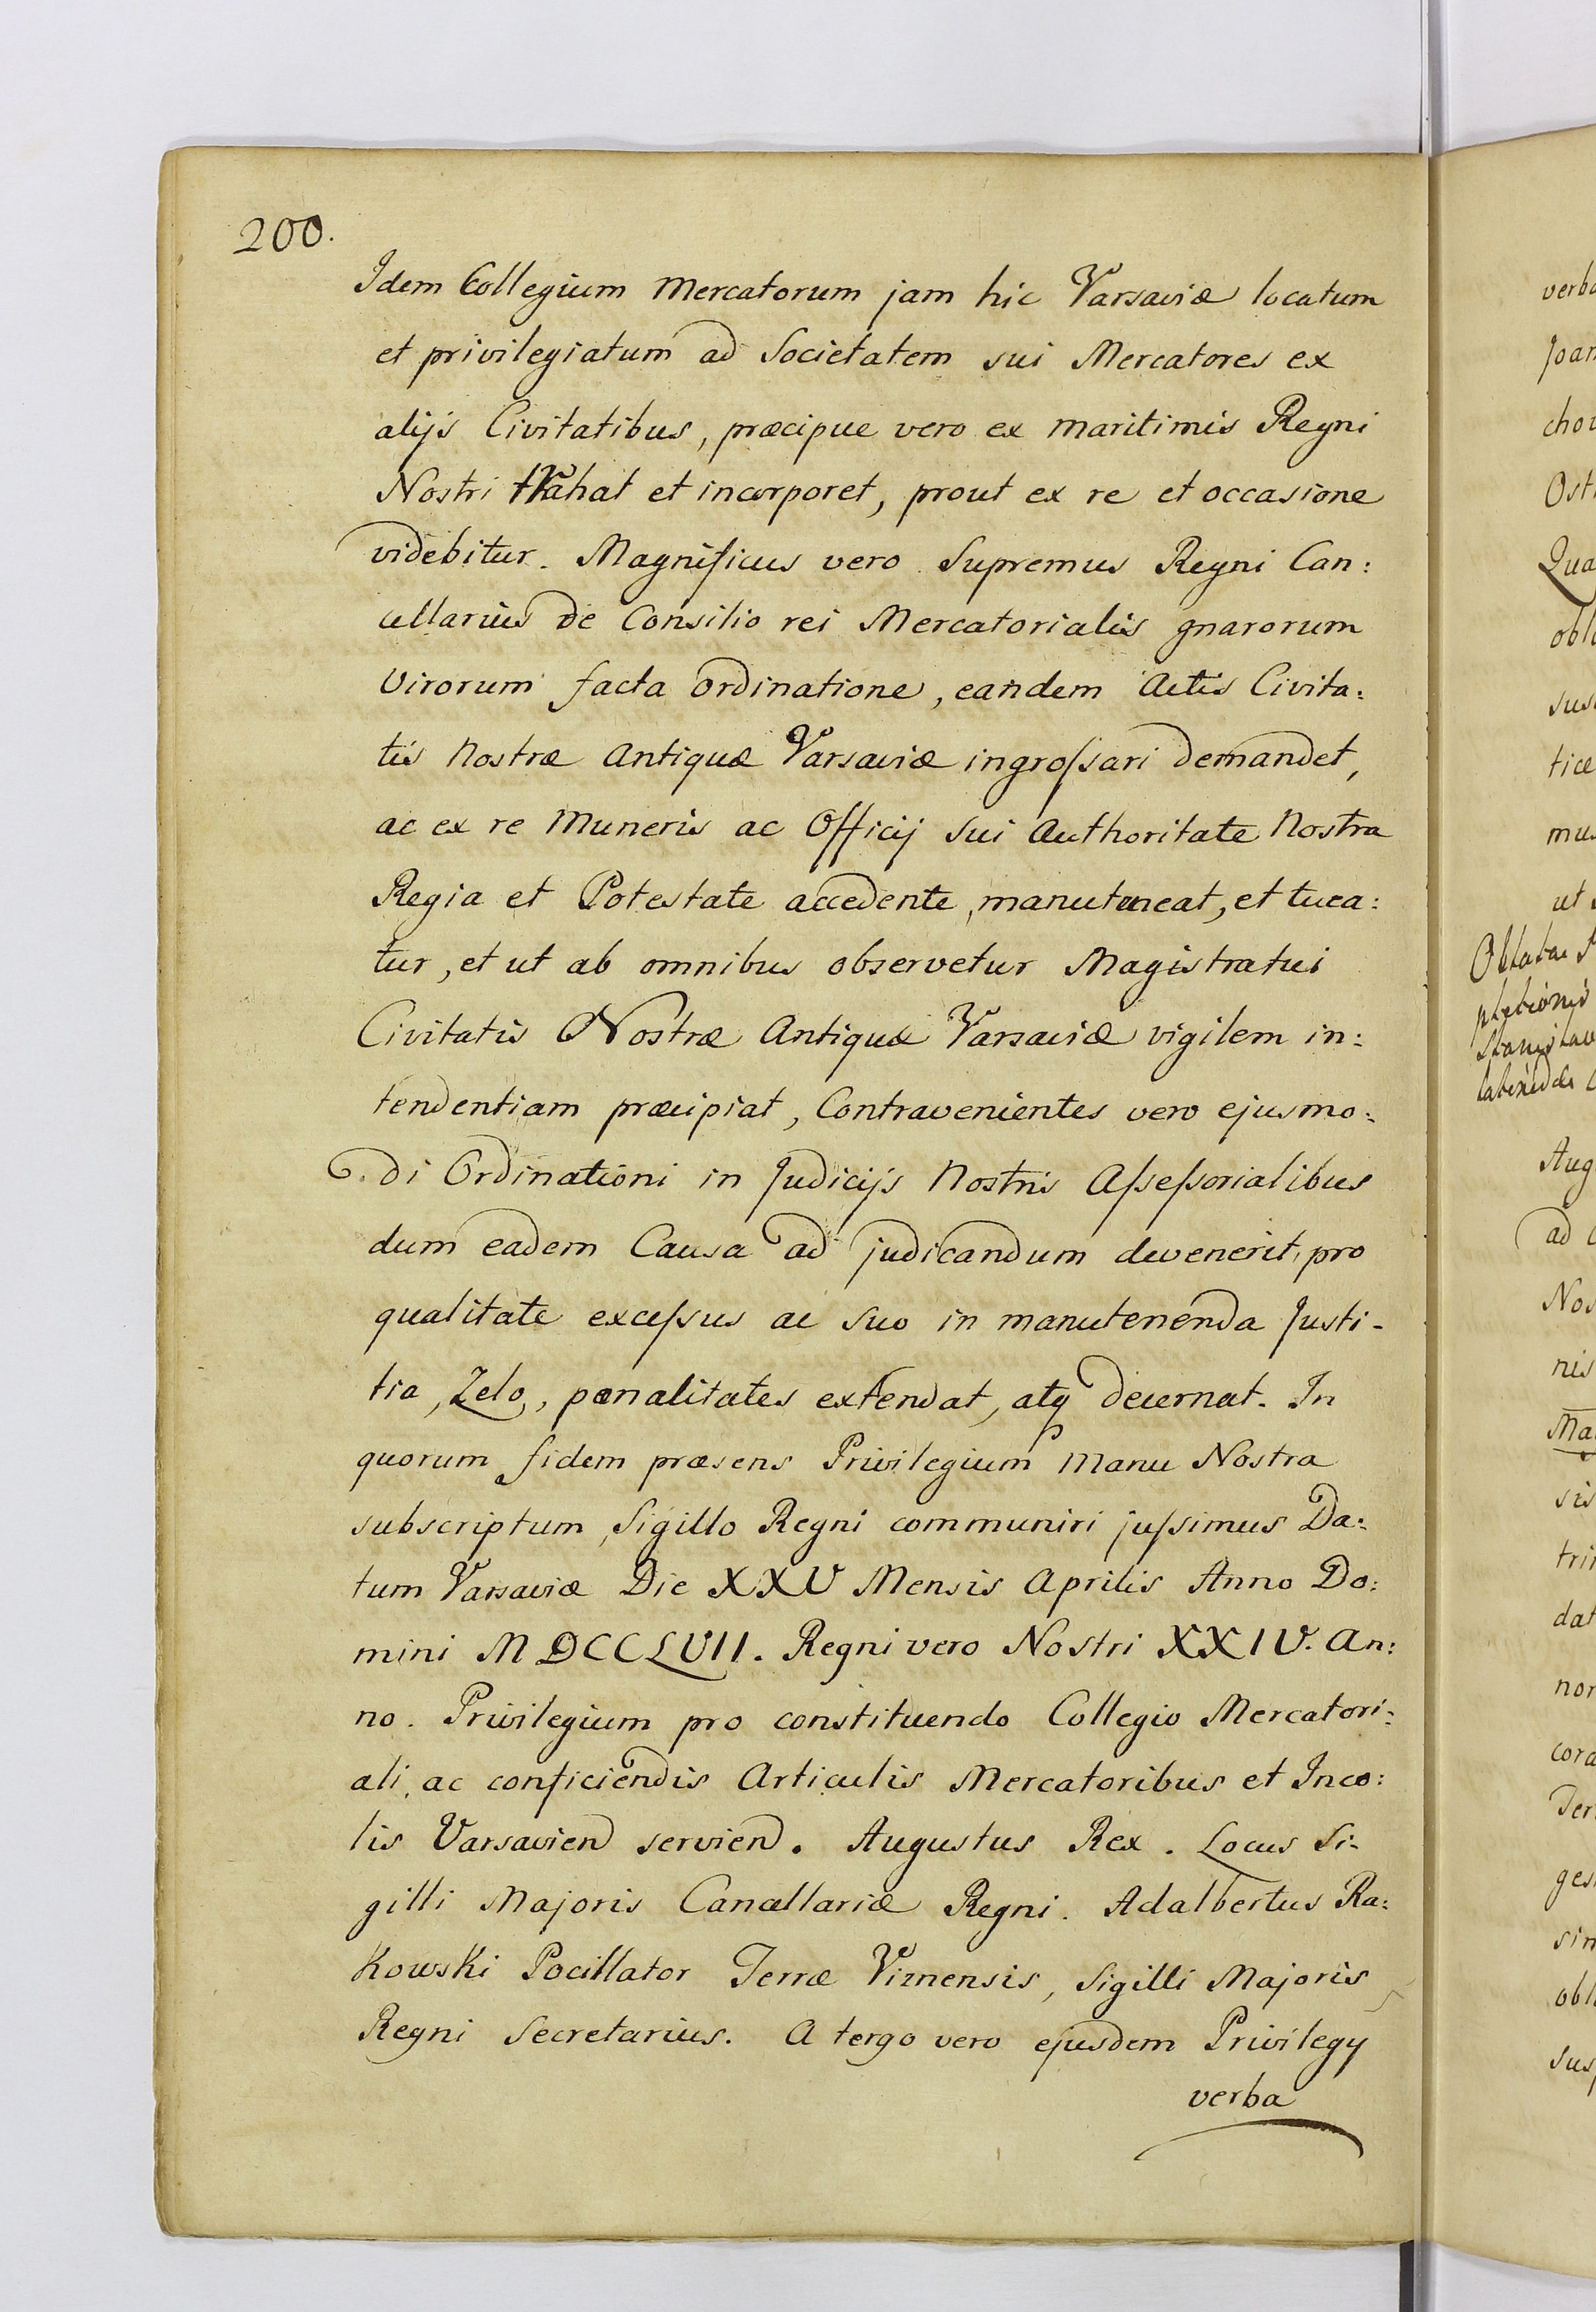 200.
Idem Collegium Mercatorum jam hic Varsaviæ locatum
et privilegiatum ad Societatem sui Mercatores ex
alijs Civitatibus, præcipue vero ex maritimis Regni
Nostri trahat et incorporet, prout ex re et occasione
videbitur. Magnificus vero Supremus Regni Can:
cellarius de Consilio rei Mercatorialis gnarorum
Virorum facta ordinatione, eandem Actis Civita:
tis Nostræ Antiquæ Varsaviæ ingroſsari demandet,
ac ex re Muneris ac Officij sui Authoritate Nostra
Regia et Potestate accedente, manuteneat, et tuea:
tur, et ut ab omnibus observetur Magistratui
Civitatis Nostræ Antiquæ Varsaviæ vigilem in:
tendentiam præcipiat, Contravenientes vero ejusmo:
di Ordinationi in Judicijs Nostris Aſseſsorialibus
dum eadem Causa ad judicandum devenerit, pro
qualitate exceſsus ac suo in manutenenda Justi-
tia, Zelo, pænalitates extendat, atq decernat. In
quorum fidem præsens Privilegium Manu Nostra
subscriptum, Sigillo Regni communiri juſsimus Da:
tum Varsaviæ Die XXV Mensis Aprilis Anno Do:
mini MDCCLVII. Regni vero Nostri XXIV. An:
no. Privilegium pro constituendo Collegio Mercatori:
ali, ac conficiendis Articulis Mercatoribus et Inco:
lis Varsavien servien. Augustus Rex. Locus Si-
gilli Majoris Cancellariæ Regni. Adalbertus Ra:
Kowski Pocillator Terræ Viznensis, Sigilli Majoris
Regni Secretarius. A tergo vero ejusdem Privilegy
verba